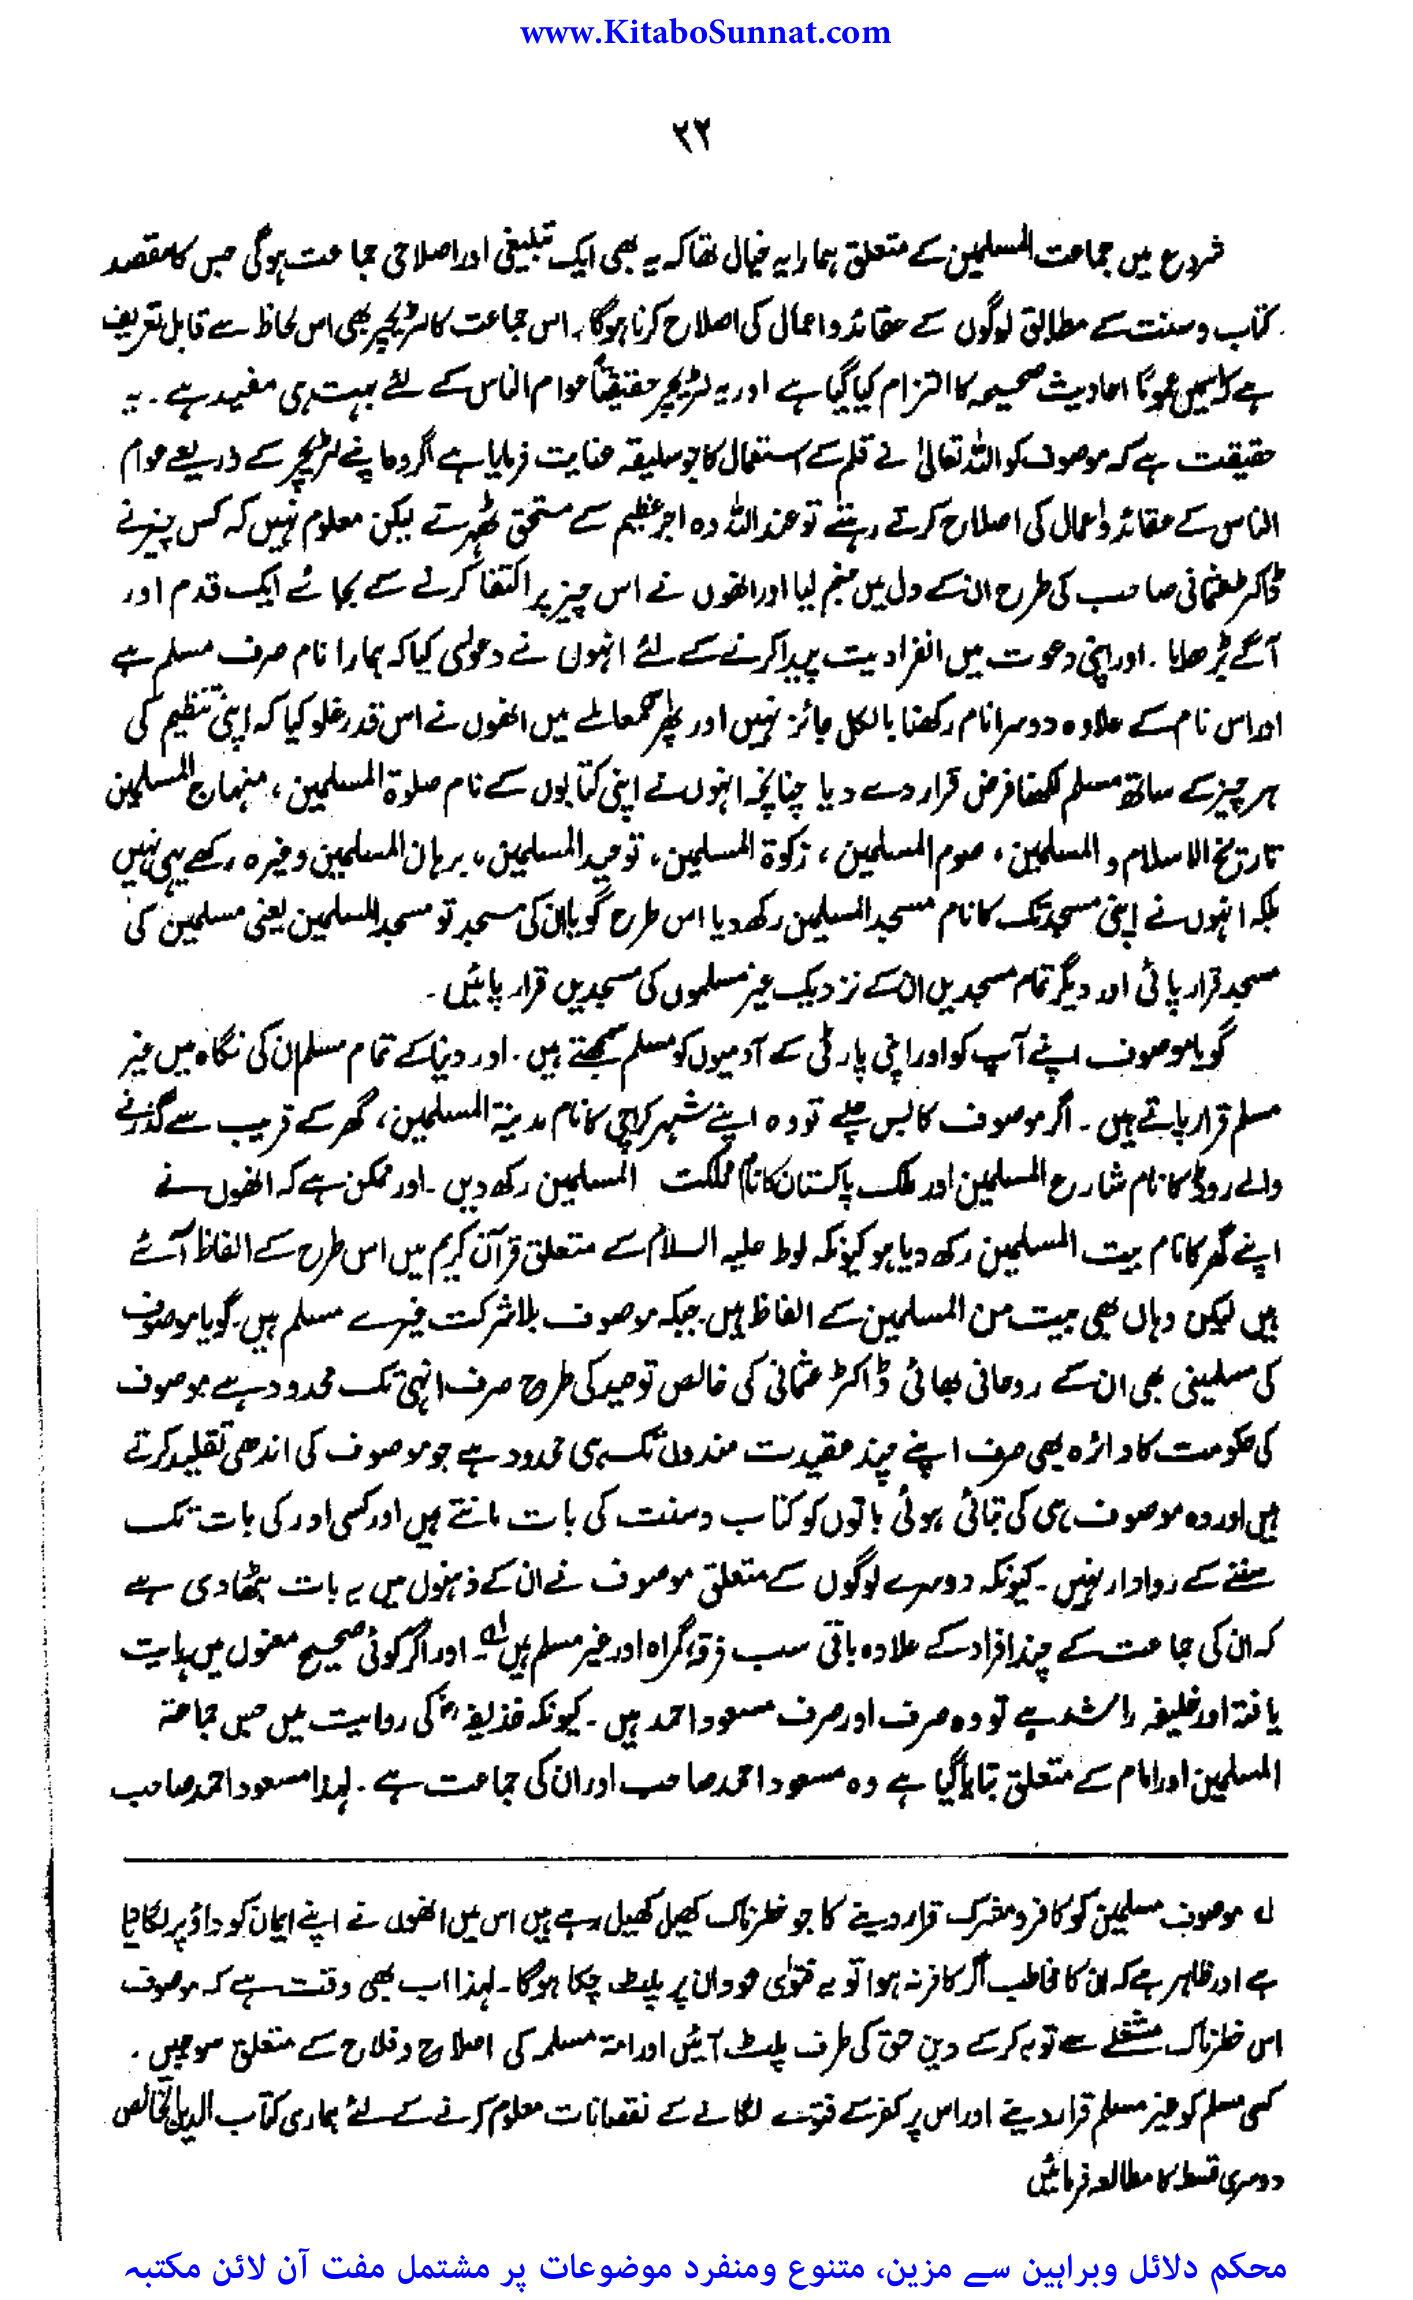 www.KitaboSunnat.com
۲۲
شروع میں جماعت المسلمین کے متعلق ہمارا یہ خیال تھا کہ یہ بھی ایک تبلیغی اور اصلاحی جماعت ہوگی جس کا مقصد
کتاب و سنت کے مطابق لوگوں کے عقائد و اعمال کی اصلاح کرنا ہوگا۔ اس جماعت کا لٹریچر بھی اس لحاظ سے قابل تعریف
ہے کہ اسمیں عموماً احادیث صحیحہ کا التزام کیا گیا ہے اور یہ لٹریچر حقیقتاً عوام الناس کے لئے بہت ہی مفید ہے۔ یہ
حقیقت ہے کہ موصوف کو اللہ تعالیٰ نے قلم کے استعمال کا جو سلیقہ عنایت فرمایا ہے اگر وہ اپنے لٹریچر کے ذریعے عوام
الناس کے عقائد و اعمال کی اصلاح کرتے رہتے تو عند اللہ وہ اجر عظیم کے مستحق ٹھہرتے لیکن معلوم نہیں کہ کس چیز نے
ڈاکٹر عثمانی صاحب کی طرح ان کے دل میں جنم لیا اور انھوں نے اس چیز پر اکتفا کرنے کے بجائے ایک قدم اور
آگے بڑھایا۔ اور اپنی دعوت میں انفرادیت پیدا کرنے کے لئے انہوں نے دعویٰ کیا کہ ہمارا نام صرف مسلم ہے
اور اس نام کے علاوہ دوسرا نام رکھنا بالکل جائز نہیں اور پھر معاملے میں انھوں نے اس قدر غلو کیا کہ اپنی تنظیم کی
ہر چیز کے ساتھ مسلم لکھنا فرض قرار دے دیا چنانچہ انہوں نے اپنی کتابوں کے نام صلوٰۃ المسلمین، منہاج المسلمین
تاریخ الاسلام و المسلمین، صوم المسلمین، زکوٰۃ المسلمین، توحید المسلمین، برہان المسلمین وغیرہ رکھے یہی نہیں
بلکہ انہوں نے اپنی مسجد تک کا نام مسجد المسلمین رکھ دیا اس طرح گویا ان کی مسجد تو مسجد المسلمین یعنی مسلمین کی
مسجد قرار پائی اور دیگر تمام مسجدیں ان کے نزدیک غیر مسلموں کی مسجدیں قرار پائیں۔
گویا موصوف اپنے آپ کو اور اپنی پارٹی کے آدمیوں کو مسلم سمجھتے ہیں۔ اور دنیا کے تمام مسلم ان کی نگاہ میں غیر
مسلم قرار پاتے ہیں۔ اگر موصوف کا بس چلے تو وہ اپنے شہر کراچی کا نام مدینۃ المسلمین، گھر کے قریب سے گذرنے
والے روڈ کا نام شارع المسلمین اور ملک پاکستان کا نام مملکت المسلمین رکھ دیں۔ اور ممکن ہے کہ انھوں نے
اپنے گھر کا نام بیت المسلمین رکھ دیا ہو کیونکہ لوط علیہ السلام کے متعلق قرآن کریم میں اس طرح کے الفاظ آئے
ہیں لیکن وہاں بھی بیت من المسلمین کے الفاظ ہیں۔ جبکہ موصوف بلا شرکت غیرے مسلم ہیں۔ گویا موصوف
کی مسلمینی بھی ان کے روحانی بھائی ڈاکٹر عثمانی کی خالص توحید کی طرح صرف انہی تک محدود ہے موصوف
کی حکومت کا دائرہ بھی صرف اپنے چند عقیدت مندوں تک ہی محدود ہے جو موصوف کی اندھی تقلید کرتے
ہیں اور وہ موصوف ہی کی بتائی ہوئی باتوں کو کتاب و سنت کی بات مانتے ہیں اور کسی اور کی بات تک
سننے کے روادار نہیں۔ کیونکہ دوسرے لوگوں کے متعلق موصوف نے ان کے ذہنوں میں یہ بات بٹھا دی ہے
کہ ان کی جماعت کے چند افراد کے علاوہ باقی سب فرقے، گمراہ اور غیر مسلم ہیں ؎۱۔ اور اگر کوئی صحیح معنوں میں ہدایت
یافتہ اور خلیفہ راشد ہے تو وہ صرف اور صرف مسعود احمد ہیں۔ کیونکہ حذیفہؓ کی روایت میں جس جماعۃ
المسلمین اور امام کے متعلق بتایا گیا ہے وہ مسعود احمد صاحب اور ان کی جماعت ہے۔ لہذا مسعود احمد صاحب
؎۱ موصوف مسلمین کو کافر و مشرک قرار دینے کا جو خطرناک کھیل کھیل رہے ہیں اس میں انھوں نے اپنے ایمان کو داؤ پر لگا دیا
ہے اور ظاہر ہے کہ ان کا مخاطب اگر کافر نہ ہوا تو یہ فتویٰ خود ان پر پلٹ چکا ہوگا۔ لہذا اب بھی وقت ہے کہ موصوف
اس خطرناک مشغلے سے توبہ کر کے دین حق کی طرف پلٹ آئیں اور امۃ مسلمہ کی اصلاح و فلاح کے متعلق سوچیں۔
کسی مسلم کو غیر مسلم قرار دینے اور اس پر کفر کے فتوے لگانے کے نقصانات معلوم کرنے کے لئے ہماری کتاب الدین الخالص
دوسری قسط کا مطالعہ فرمائیں
محکم دلائل وبراہین سے مزین، متنوع ومنفرد موضوعات پر مشتمل مفت آن لائن مکتبہ